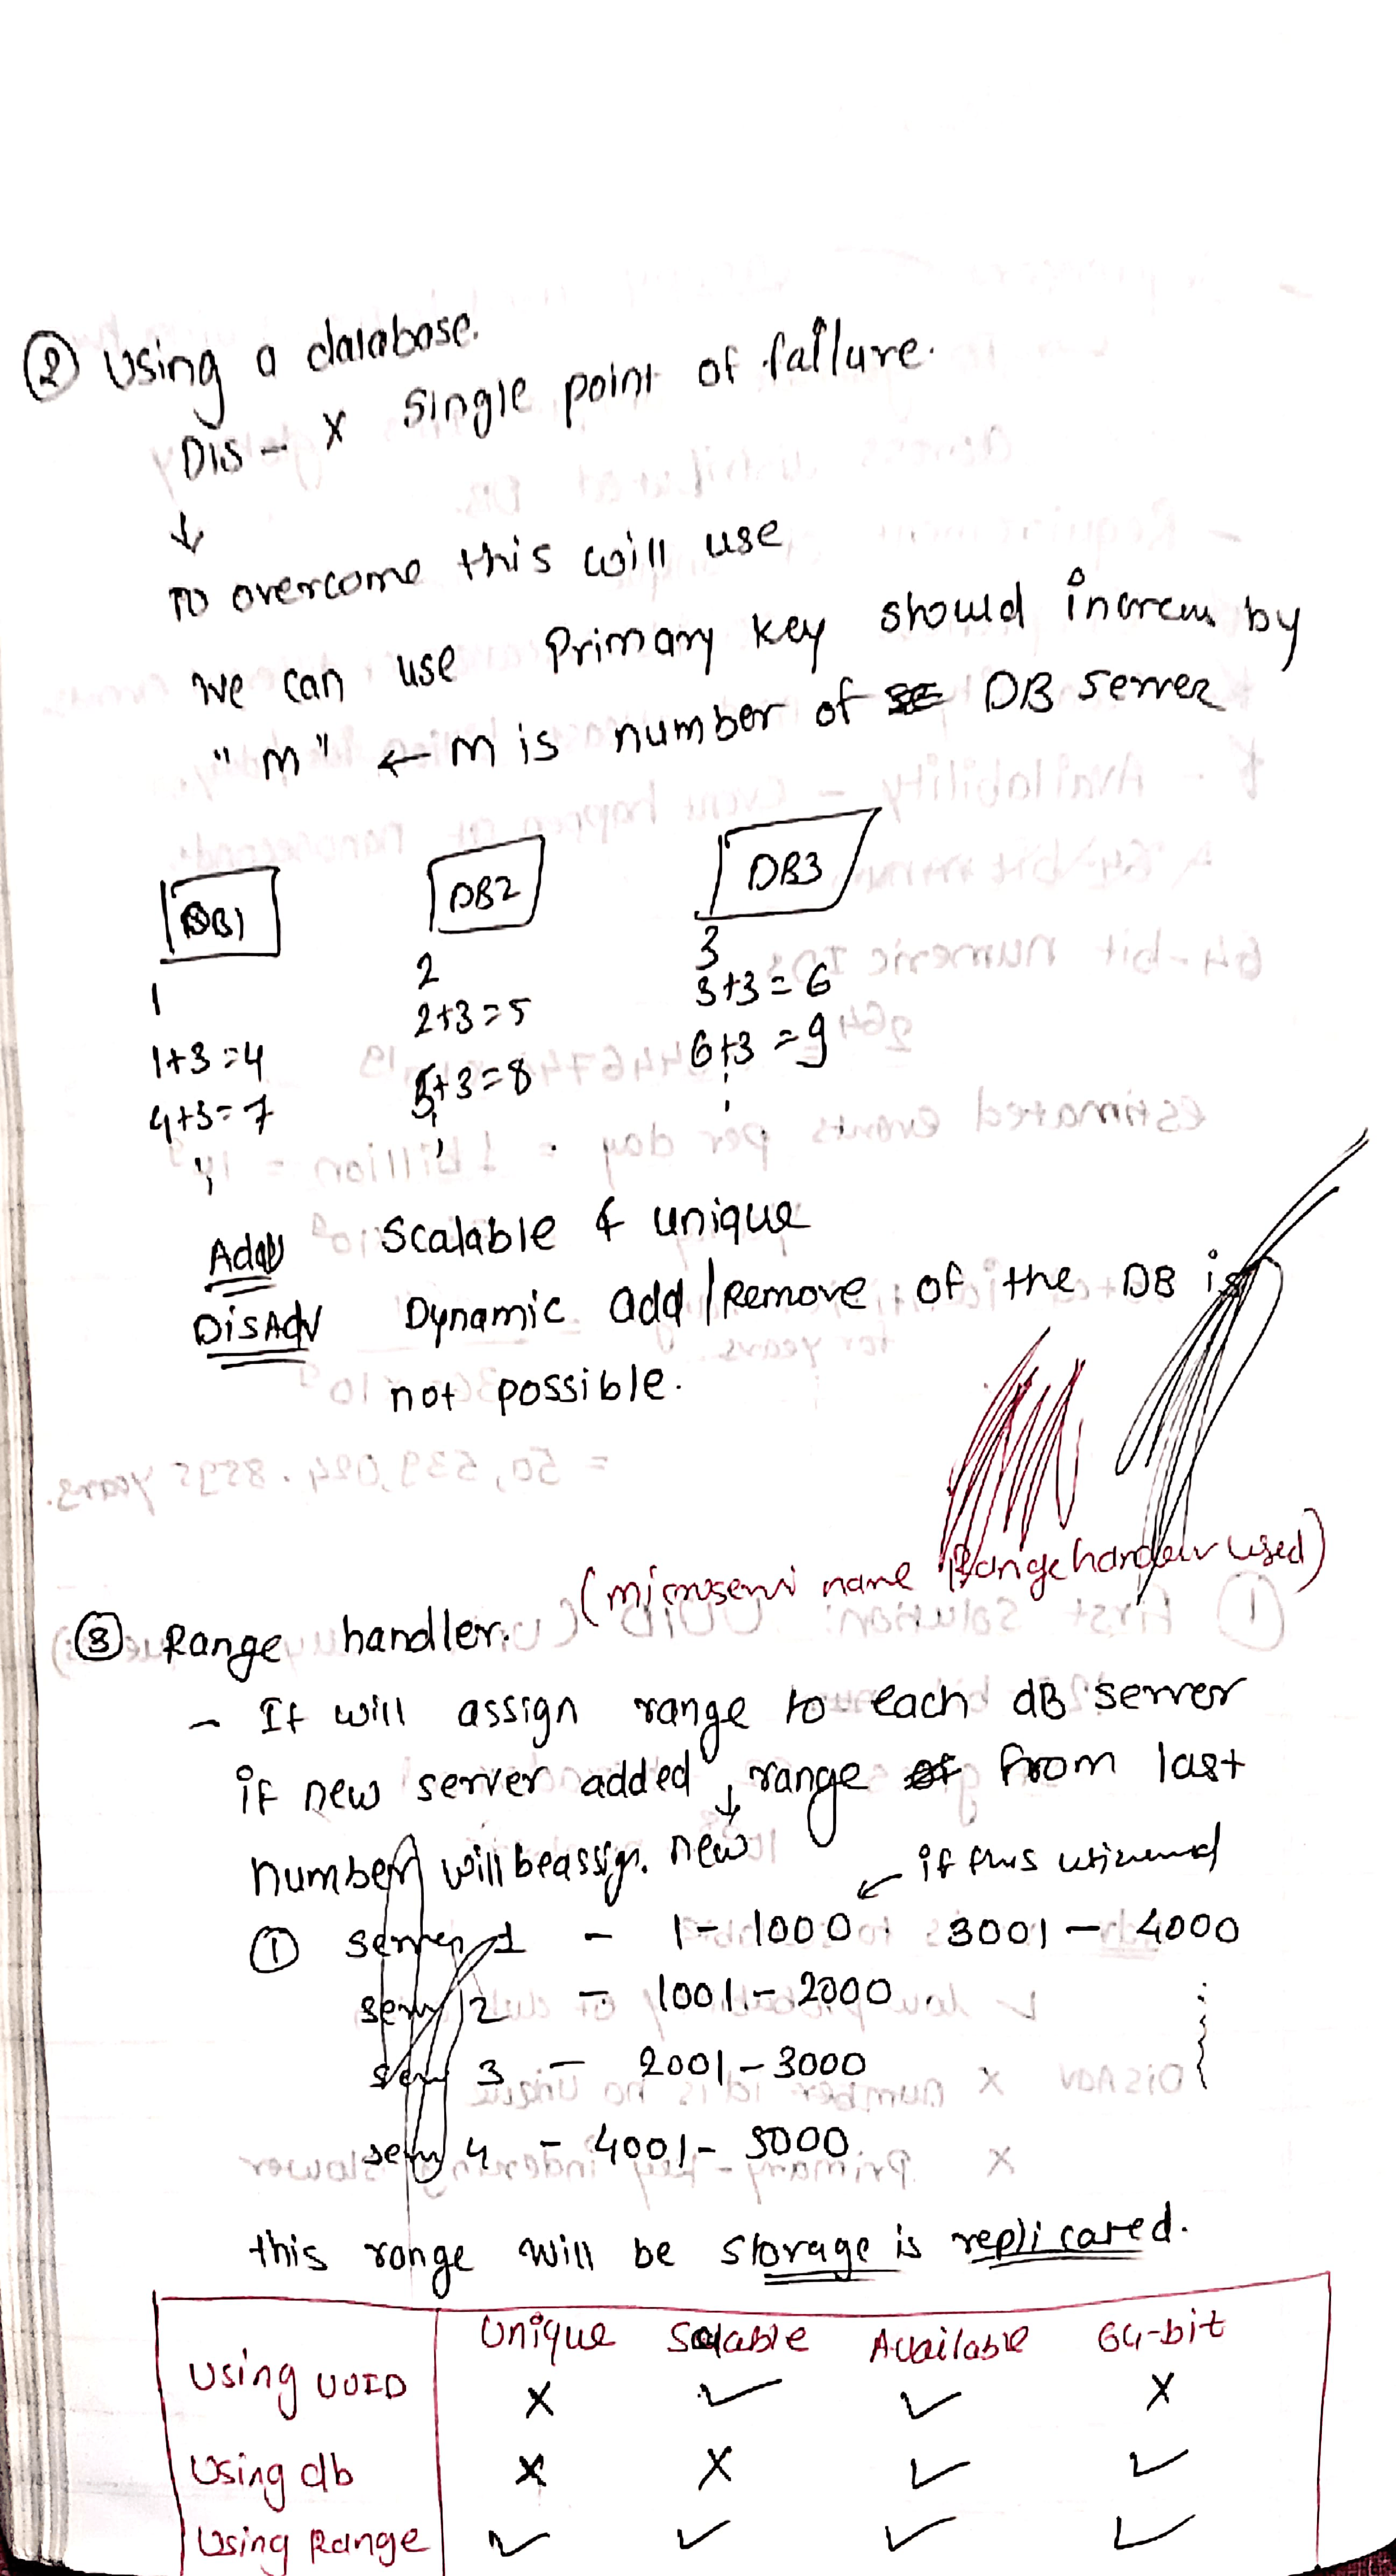 ② Using a database.
Dis - X Single point of failure.
↓
To overcome this will use
we can use Primary key should increm by
"m" ← m is number of DB server
DB1 DB2 DB3
1 2 3
1+3=4 2+3=5 3+3=6
4+3=7 5+3=8 6+3=9
Adv Scalable & unique
DisAdv Dynamic add/Remove of the DB is
not possible.
③ Range handler. (microservi name Rangehandler used)
- It will assign range to each dB server
if new server added, range from last
number will be assign. new
← if this
① server 1 - 1-1000 3001-4000
serv 2 - 1001-2000
serv 3 - 2001-3000
serv 4 - 4001-5000
this range will be storage is replicated.
Unique Scalable Available 64-bit
Using UUID X ✓ ✓ X
Using db X X ✓ ✓
Using Range ✓ ✓ ✓ ✓